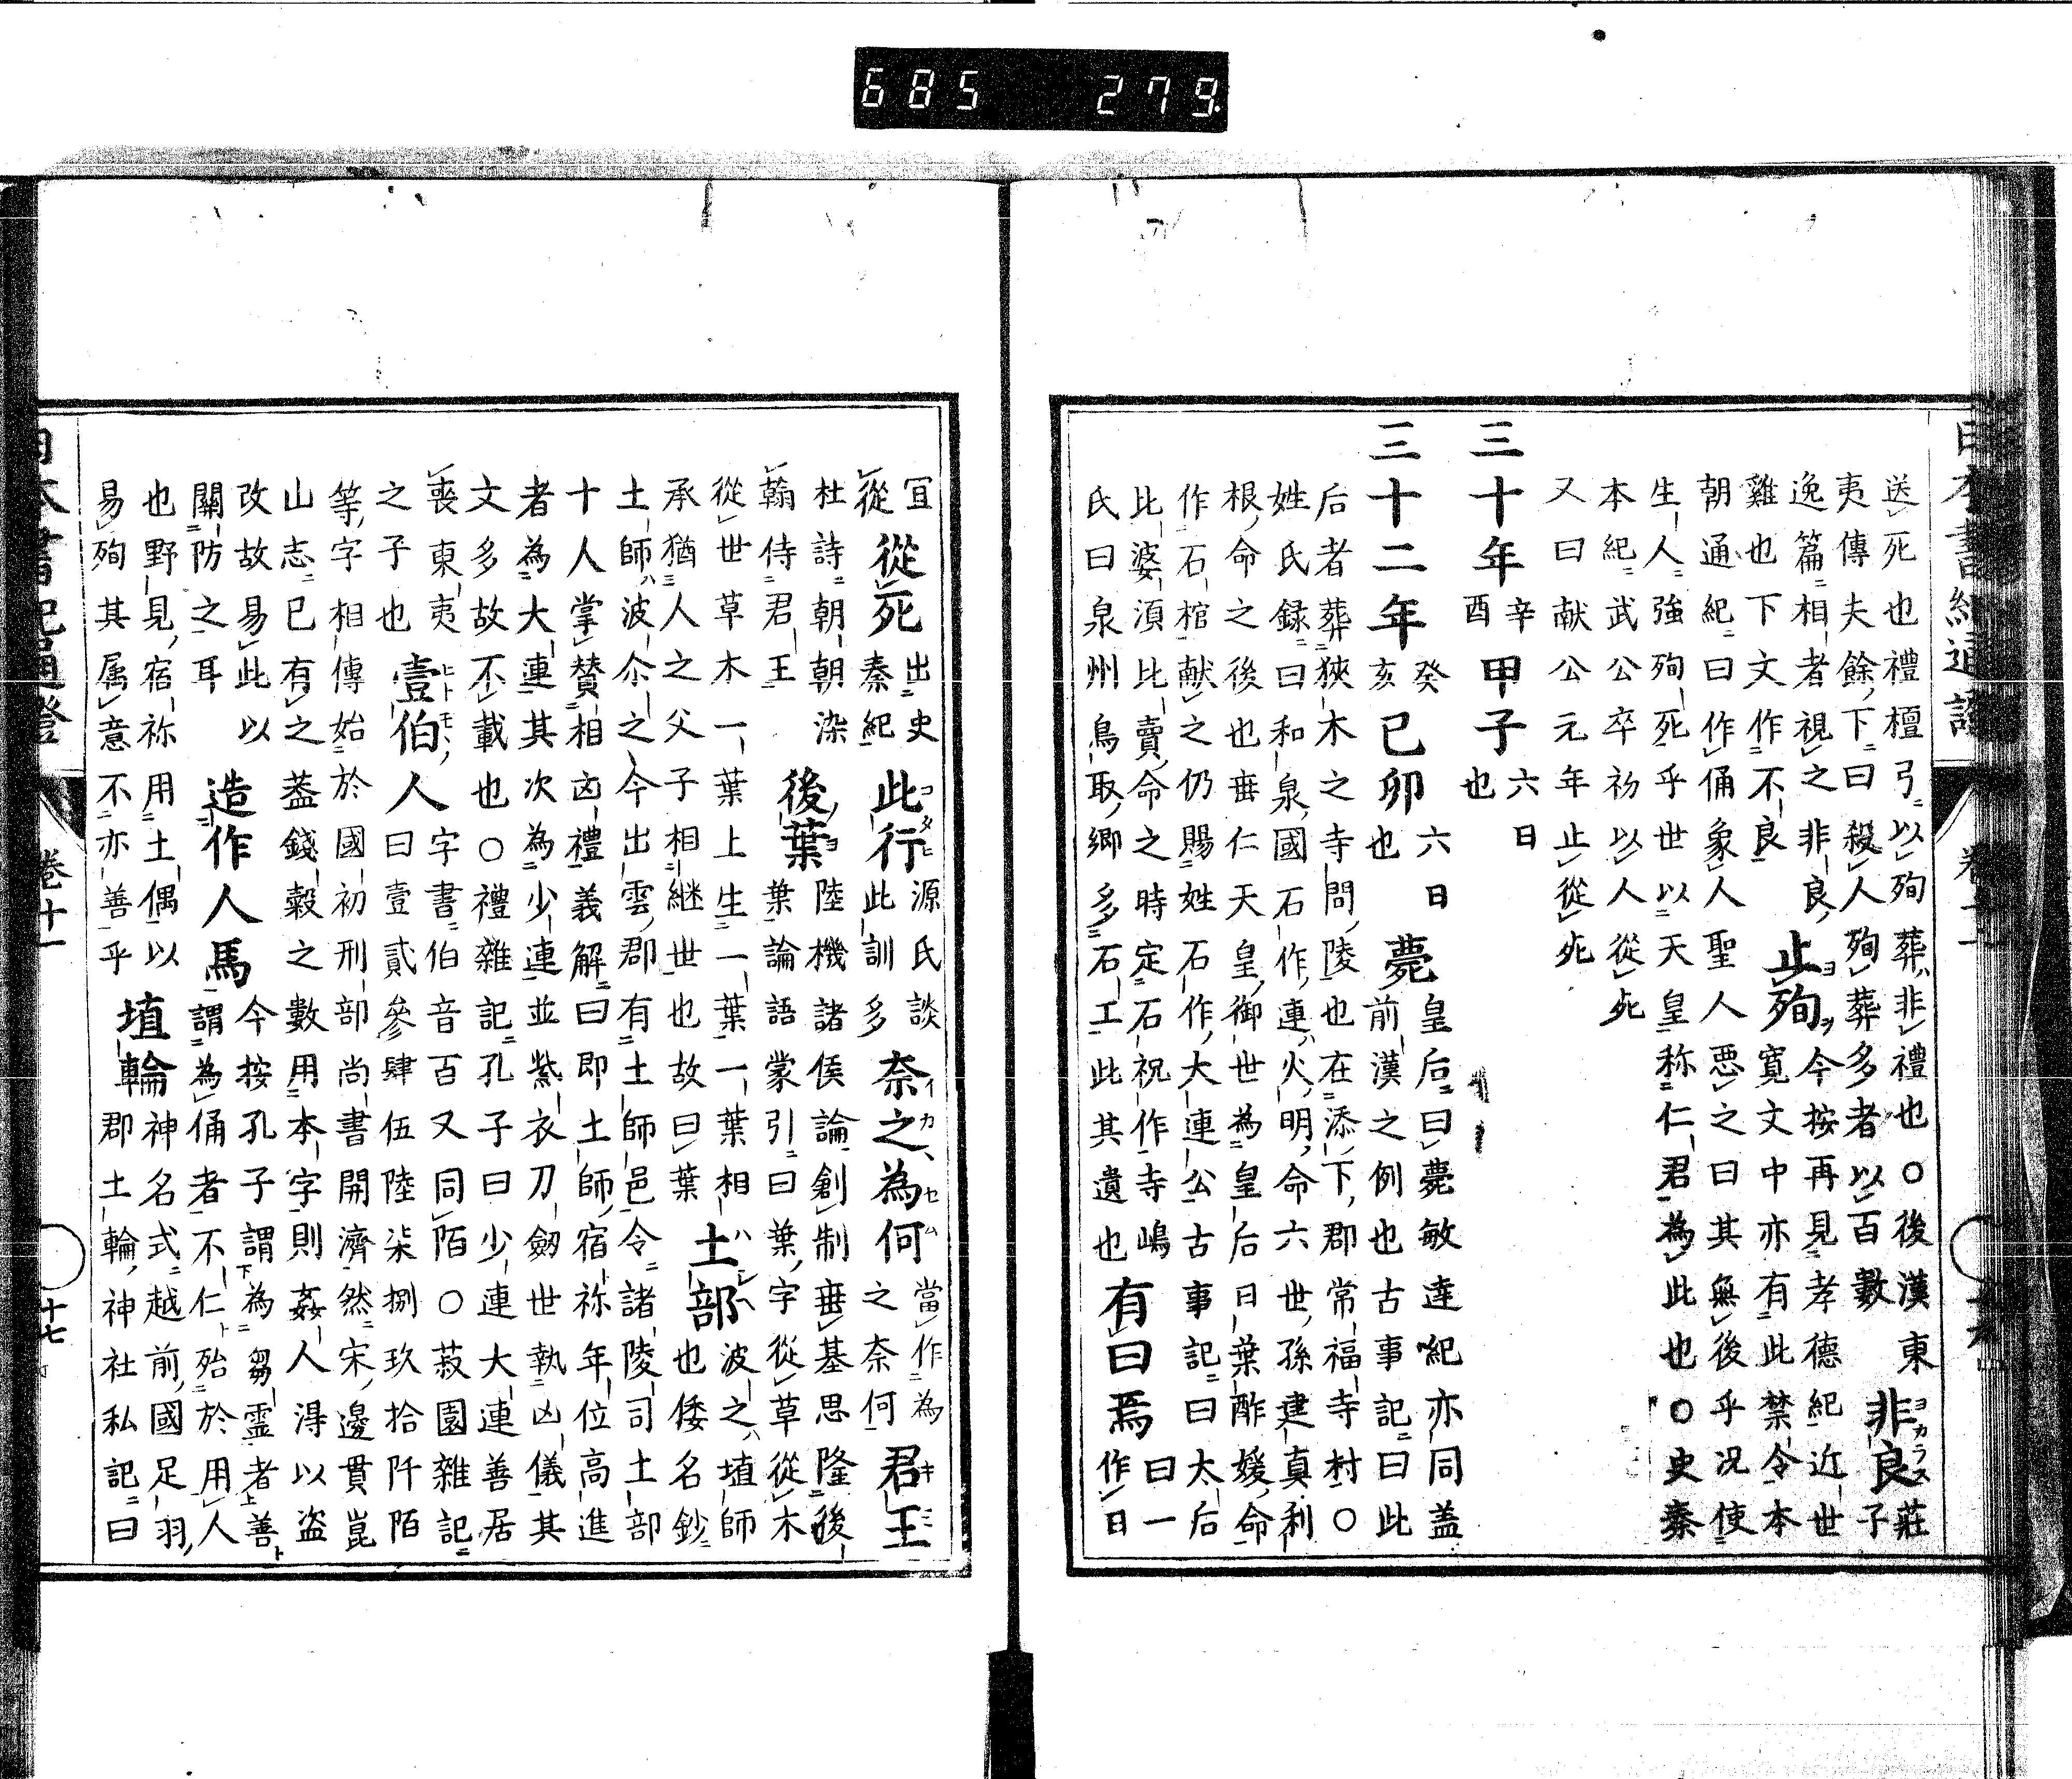 685 279
送死也禮檀弓以殉葬非禮也○後漢東
夷傳夫餘下曰殺人殉葬多者以百數
非良
ヨカラス
莊
子
逸篇相者視之非良
雞也下文作不良
止殉
今按再見孝德紀近世
寬文中亦有此禁令本
朝通紀曰作俑象人聖人惡之曰其無後乎况使
生人強殉死乎世以天皇称仁君為此也○史秦
本紀武公卒初以人從死
又曰献公元年止從死
三十年
辛
酉
甲子
六日
也
三十二年
癸
亥
己卯
六日
也
薨
皇后曰薨敏達紀亦同盖
前漢之例也古事記曰此
后者葬狹木之寺間陵也在添下郡常福寺村○
姓氏録曰和泉國石作連火明命六世孫建真利
根命之後也垂仁天皇御世為皇后日葉酢媛命
作石棺献之仍賜姓石作大連公古事記曰太后
比婆湏比賣命之時定石祝作寺嶋
氏曰泉州鳥取郷多石工此其遺也
有曰焉
曰一
作日
宜
從
從死
出史
秦紀
此行
コタヒ
源氏談
此訓多
奈之為何
イカヽセム
當作為
之奈何
君王
キミ
杜詩朝朝染
翰侍君王
後葉
陸機諸侯論創制垂基思隆後
葉論語蒙引曰葉字從草從木
從世草木一葉上生一葉一葉相
承猶人之父子相継世也故曰葉
土部
ハシ
波之埴師
也倭名鈔
土師波尓之今出雲郡有土師邑令諸陵司土部
十人掌賛相凶禮義解曰即土師宿祢年位高進
者為大連其次為少連並紫衣刀劔世執凶儀其
文多故不載也○禮雜記孔子曰少連大連善居
喪東夷
之子也
壹伯人
ヒトモヽ
字書伯音百又同陌○菽園雜記
曰壹貳參肆伍陸柒捌玖拾阡陌
等字相傳始於國初刑部尚書開濟然宋邊貫崑
山志已有之葢錢穀之數用本字則姦人淂以盗
改故易此以
關防之耳
造作人馬
今按孔子謂為芻霊者善
謂為俑者不仁殆於用人
也野見宿祢用土偶以
易殉其属意不亦善乎
埴輪
神名式越前國足羽
郡土輪神社私記曰
巻十一
十七